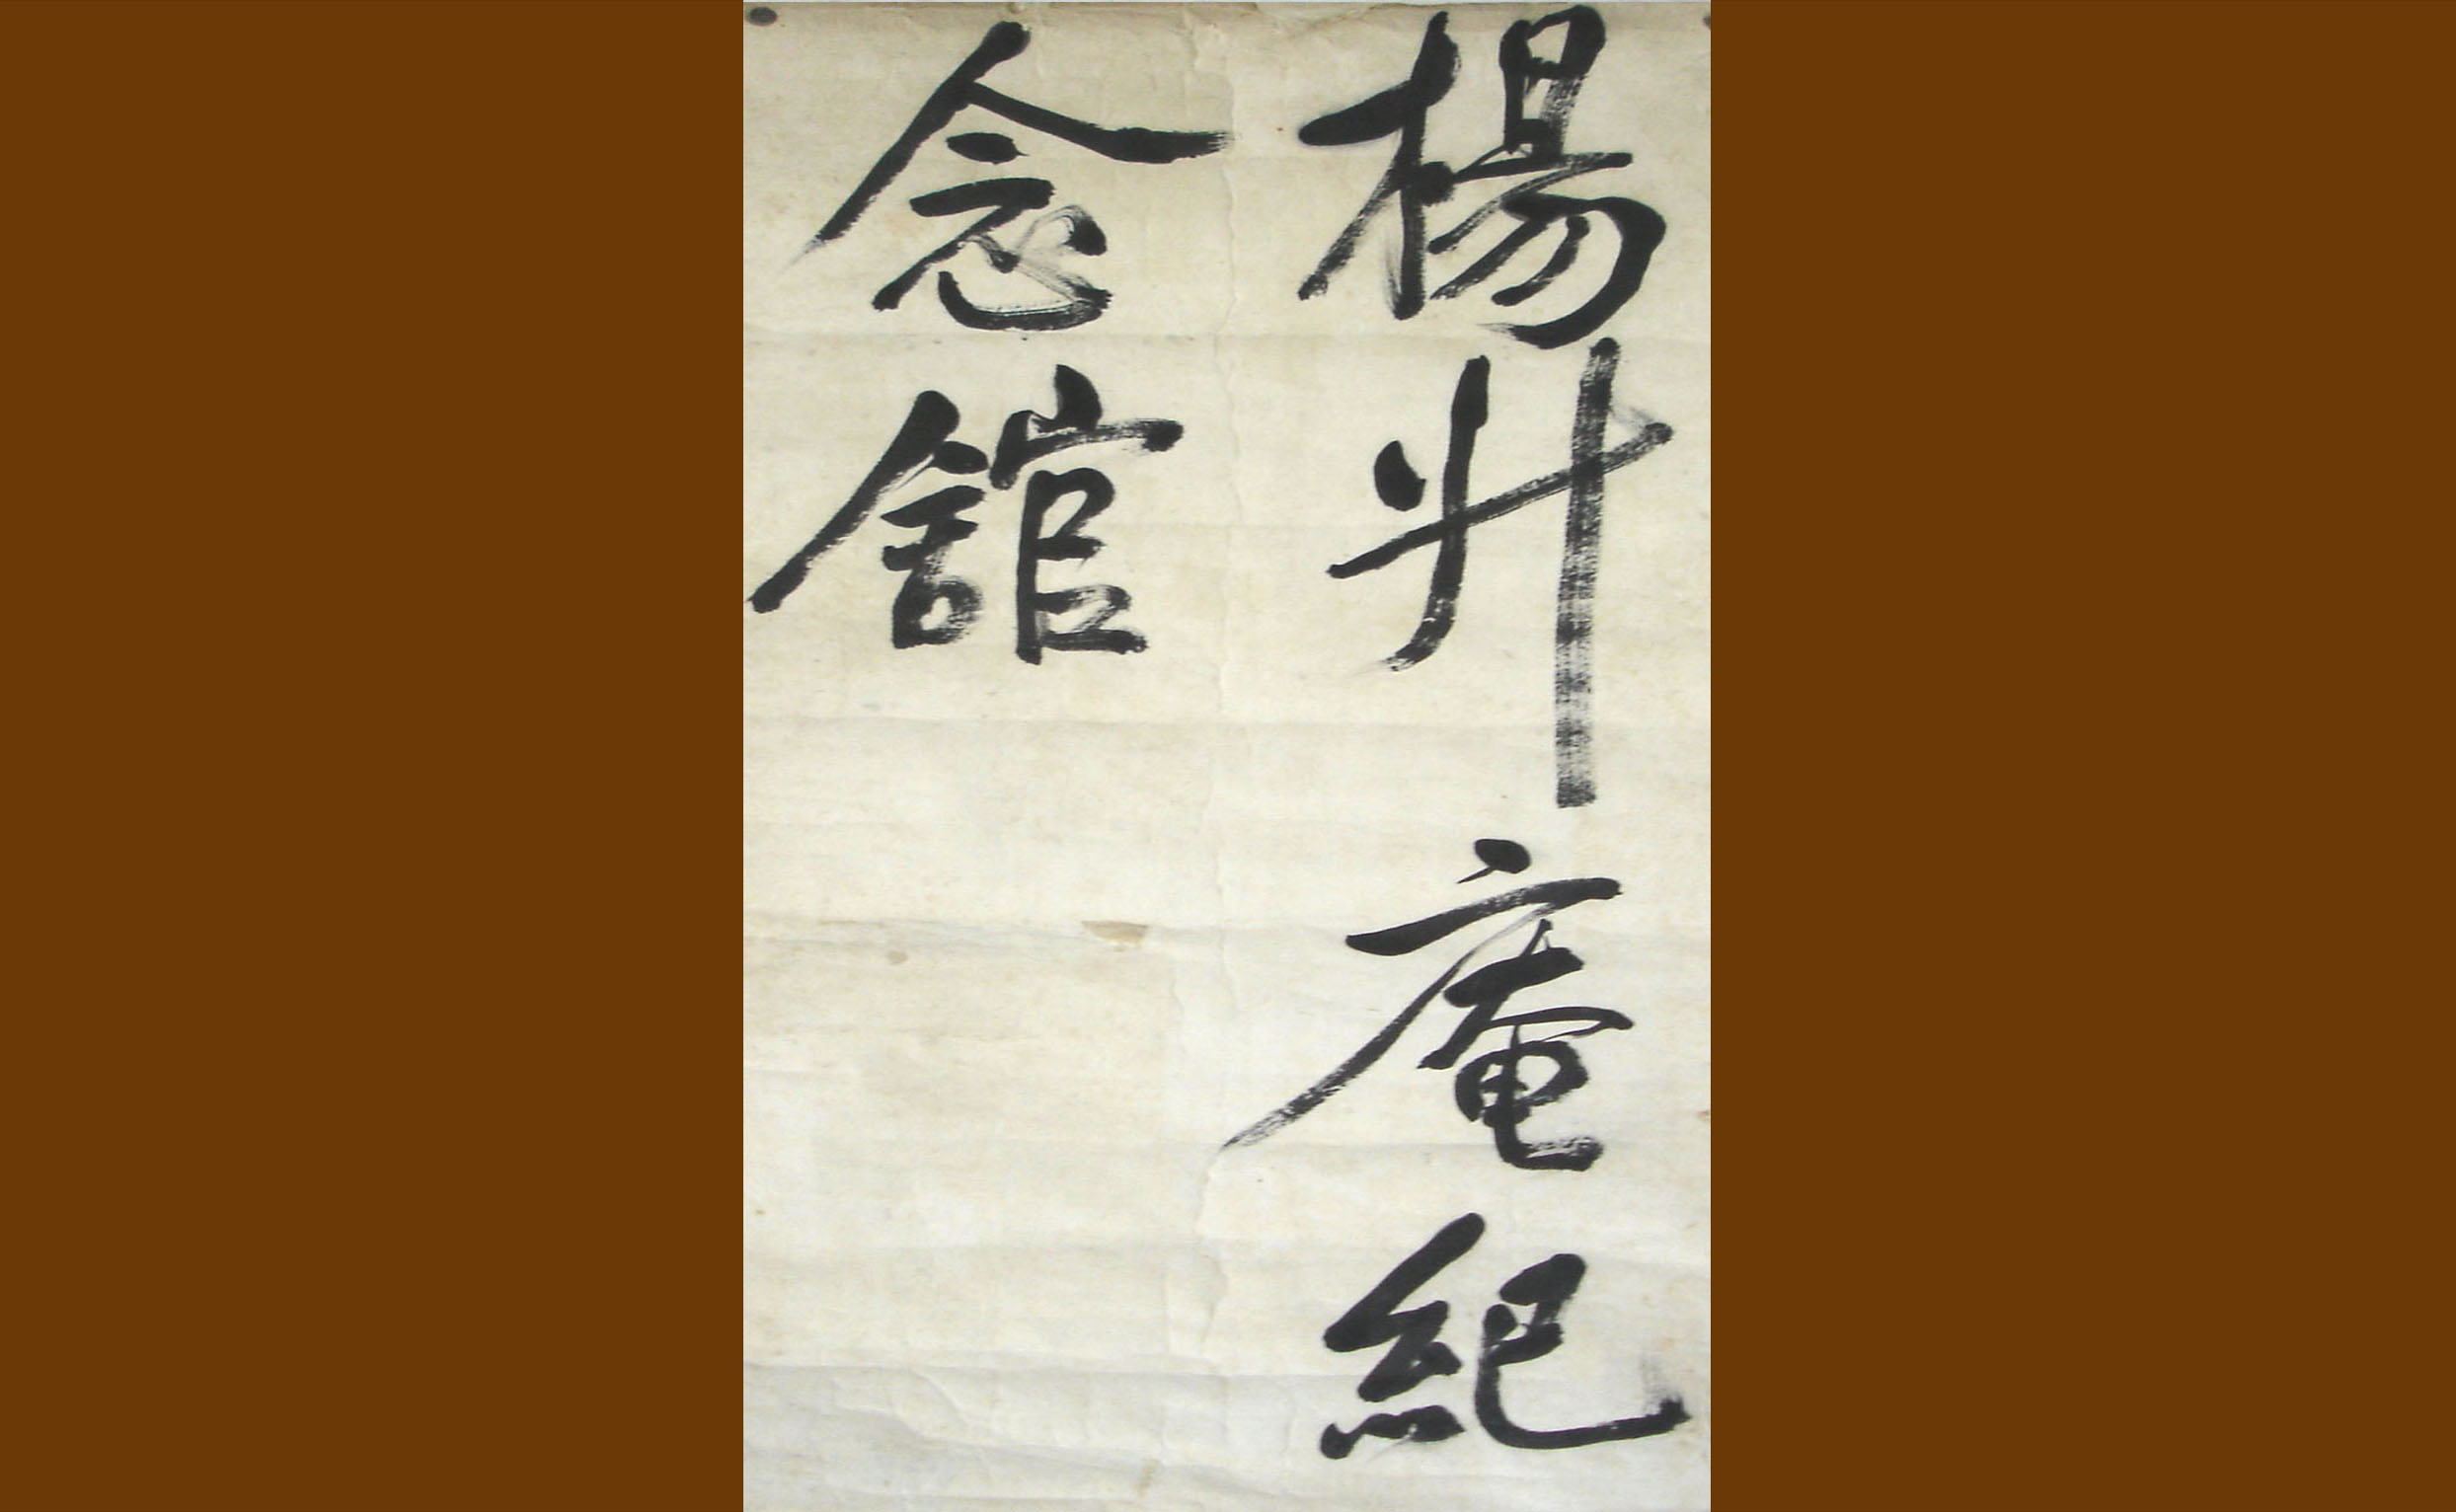 楊升庵紀
念館